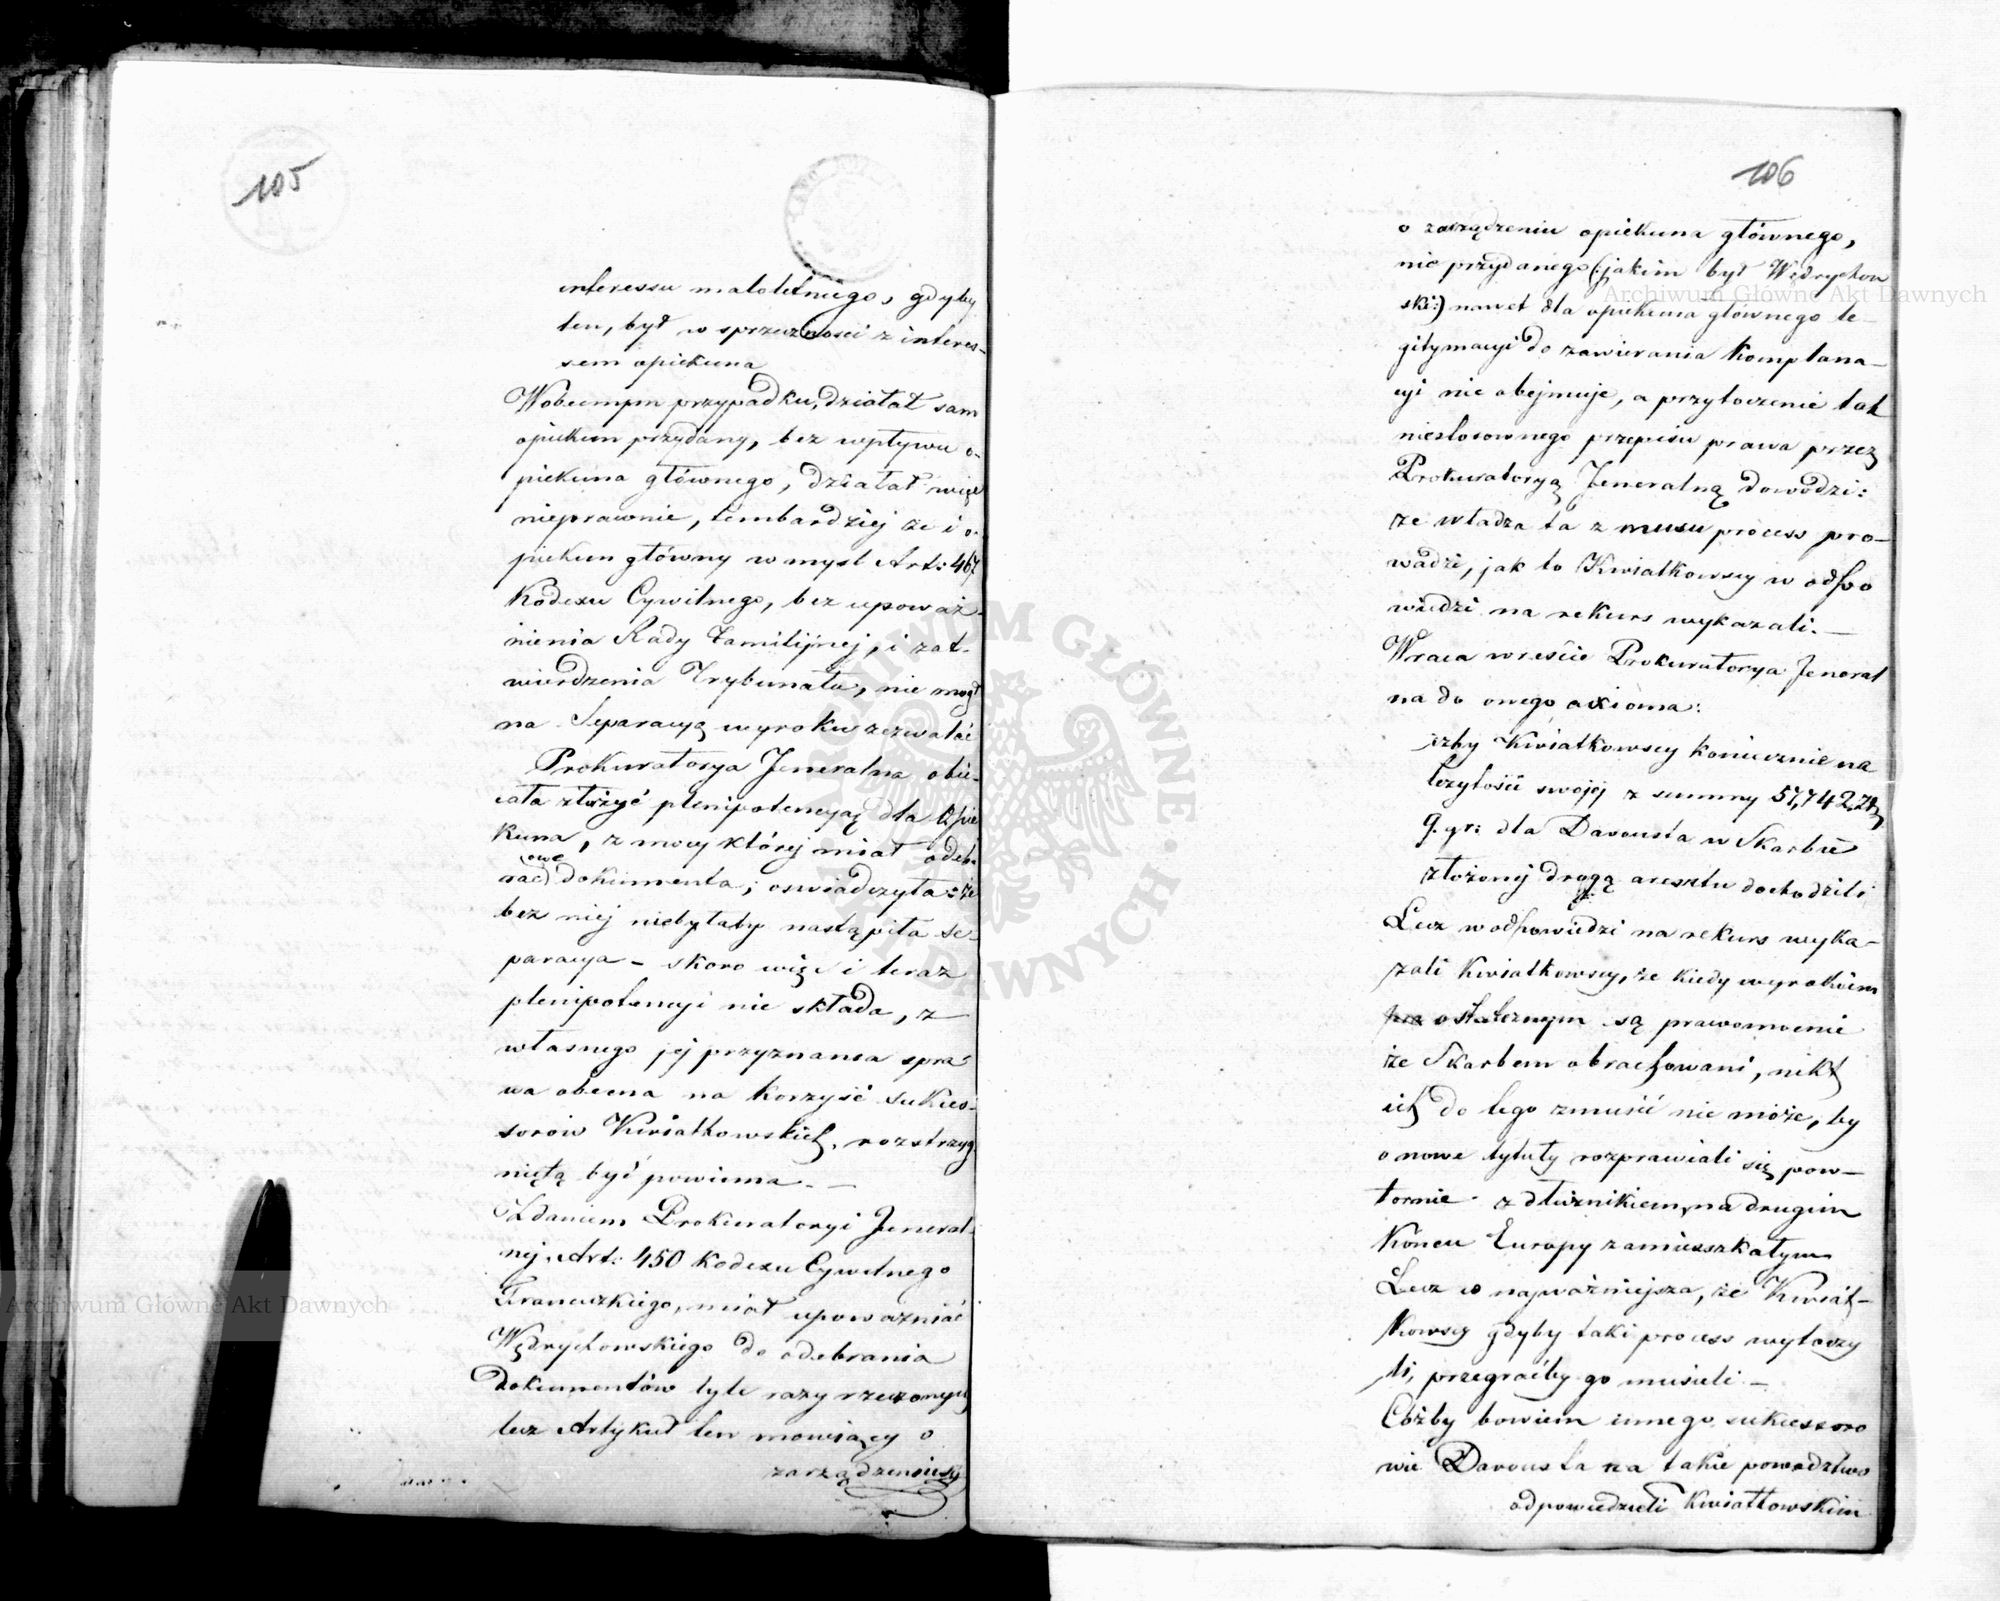 105
interessu małoletniego, gdyby
ten, był w sprzeczności z interes-
sem opiekuna
W obecnym przypadku, działał sam
opiekun przydany, bez wpływu o-
piekuna głównego, działał więc
nieprawnie, tembardziej że i o-
piekun główny w myśl Art: 467
Kodexu Cywilnego, bez upoważ-
nienia Rady Familijnej, i zat-
wierdzenia Trybunału, nie mógł
na Separacyą wyroku zezwalać
Prokuratorya Jeneralna obie-
cała złożyć plenipotencyą dla Opie
kuna, z mocy której miał odeb-
rać owe dokumenta, oswiadczyła: że
bez niej niebyłaby nastąpiła se-
paracya – skoro więc i teraz
plenipotencyi nie składa, z
własnego jej przyznania spra-
wa obecna na korzyść sukces-
sorów Kwiatkowskich, rozstrzyg
niętą być powinna. —
Zdaniem Prokuratoryi Jeneral-
nej, Art: 450 Kodexu Cywilnego
Francuzkiego, miał upoważniać
Wędrychowskiego do odebrania
Dokumentów tyle razy rzeczonych
lecz Artykuł ten mówiący o
zarządzeniu
106
o zarządzeniu opiekuna głównego,
nie przydanego (:jakim był Wędrychow
ski:) nawet dla opiekuna głównego le-
gitymacyi do zawierania Komplana-
cyi nie obejmuje, a przytoczenie tak
niestosownego przepisu prawa przez
Prokuratoryą Jeneralną dowodzi:
że władza ta z musu process pro-
wadzi, jak to Kwiatkowscy w odpo
wiedzi na rekurs wykazali. —
Wraca wreście Prokuratorya Jeneral
na do onego axioma:
iżby Kwiatkowscy koniecznie na
leżytość swojej z summy 57,742 Zł
9. gr: dla Davousta w Skarbie
złożonej drogą aresztu dochodzili
Lecz w odpowiedzi na rekurs wyka-
zali Kwiatkowscy, że kiedy wyrokiem
ostatecznym są prawomocnie
ze Skarbem obrachowani, nikt
ich do tego zmusić nie może, by
o nowe tytuły rozprawiali się pow-
tornie z dłużnikiem, na drugim
Końcu Europy zamieszkałym
Lecz co najważniejsza, że Kwiat-
kowscy gdyby taki process wytoczy
li, przegraćby go musieli —
Cóżby bowiem innego sukcessoro
wie Davousta na takie powództwo
odpowiedzieli Kwiatkowskim
Archiwum Główne Akt Dawnych
Archiwum Główne Akt Dawnych
ARCHIWUM GŁÓWNE AKT DAWNYCH